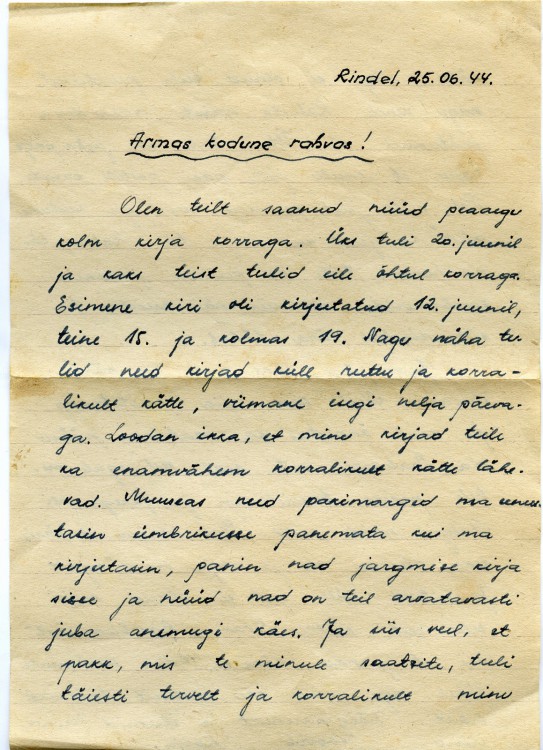 Rindel, 25.06.44.
Armas kodune rahvas!
Olen teilt saanud nüüd peaaegu
kolm kirja korraga. Üks tuli 20. juunil
ja kaks teist tulid eile õhtul korraga.
Esimene kiri oli kirjutatud 12. juunil,
teine 15. ja kolmas 19. Nagu näha tu-
lid need kirjad küll ruttu ja korra-
likult kätte, viimane isegi nelja päeva-
ga. Loodan ikka, et minu kirjad teile
ka enamvähem korralikult kätte lähe-
vad. Muuseas need pakimargid ma unus-
tasin ümbrikusse panemata kui ma
kirjutasin, panin nad jargmise kirja
sisse ja nüüd nad on teil arvatavasti
juba ammugi käes. Ja siis veel, et
pakk, mis te minule saatsite, tuli
täiesti tervelt ja korralikult minu